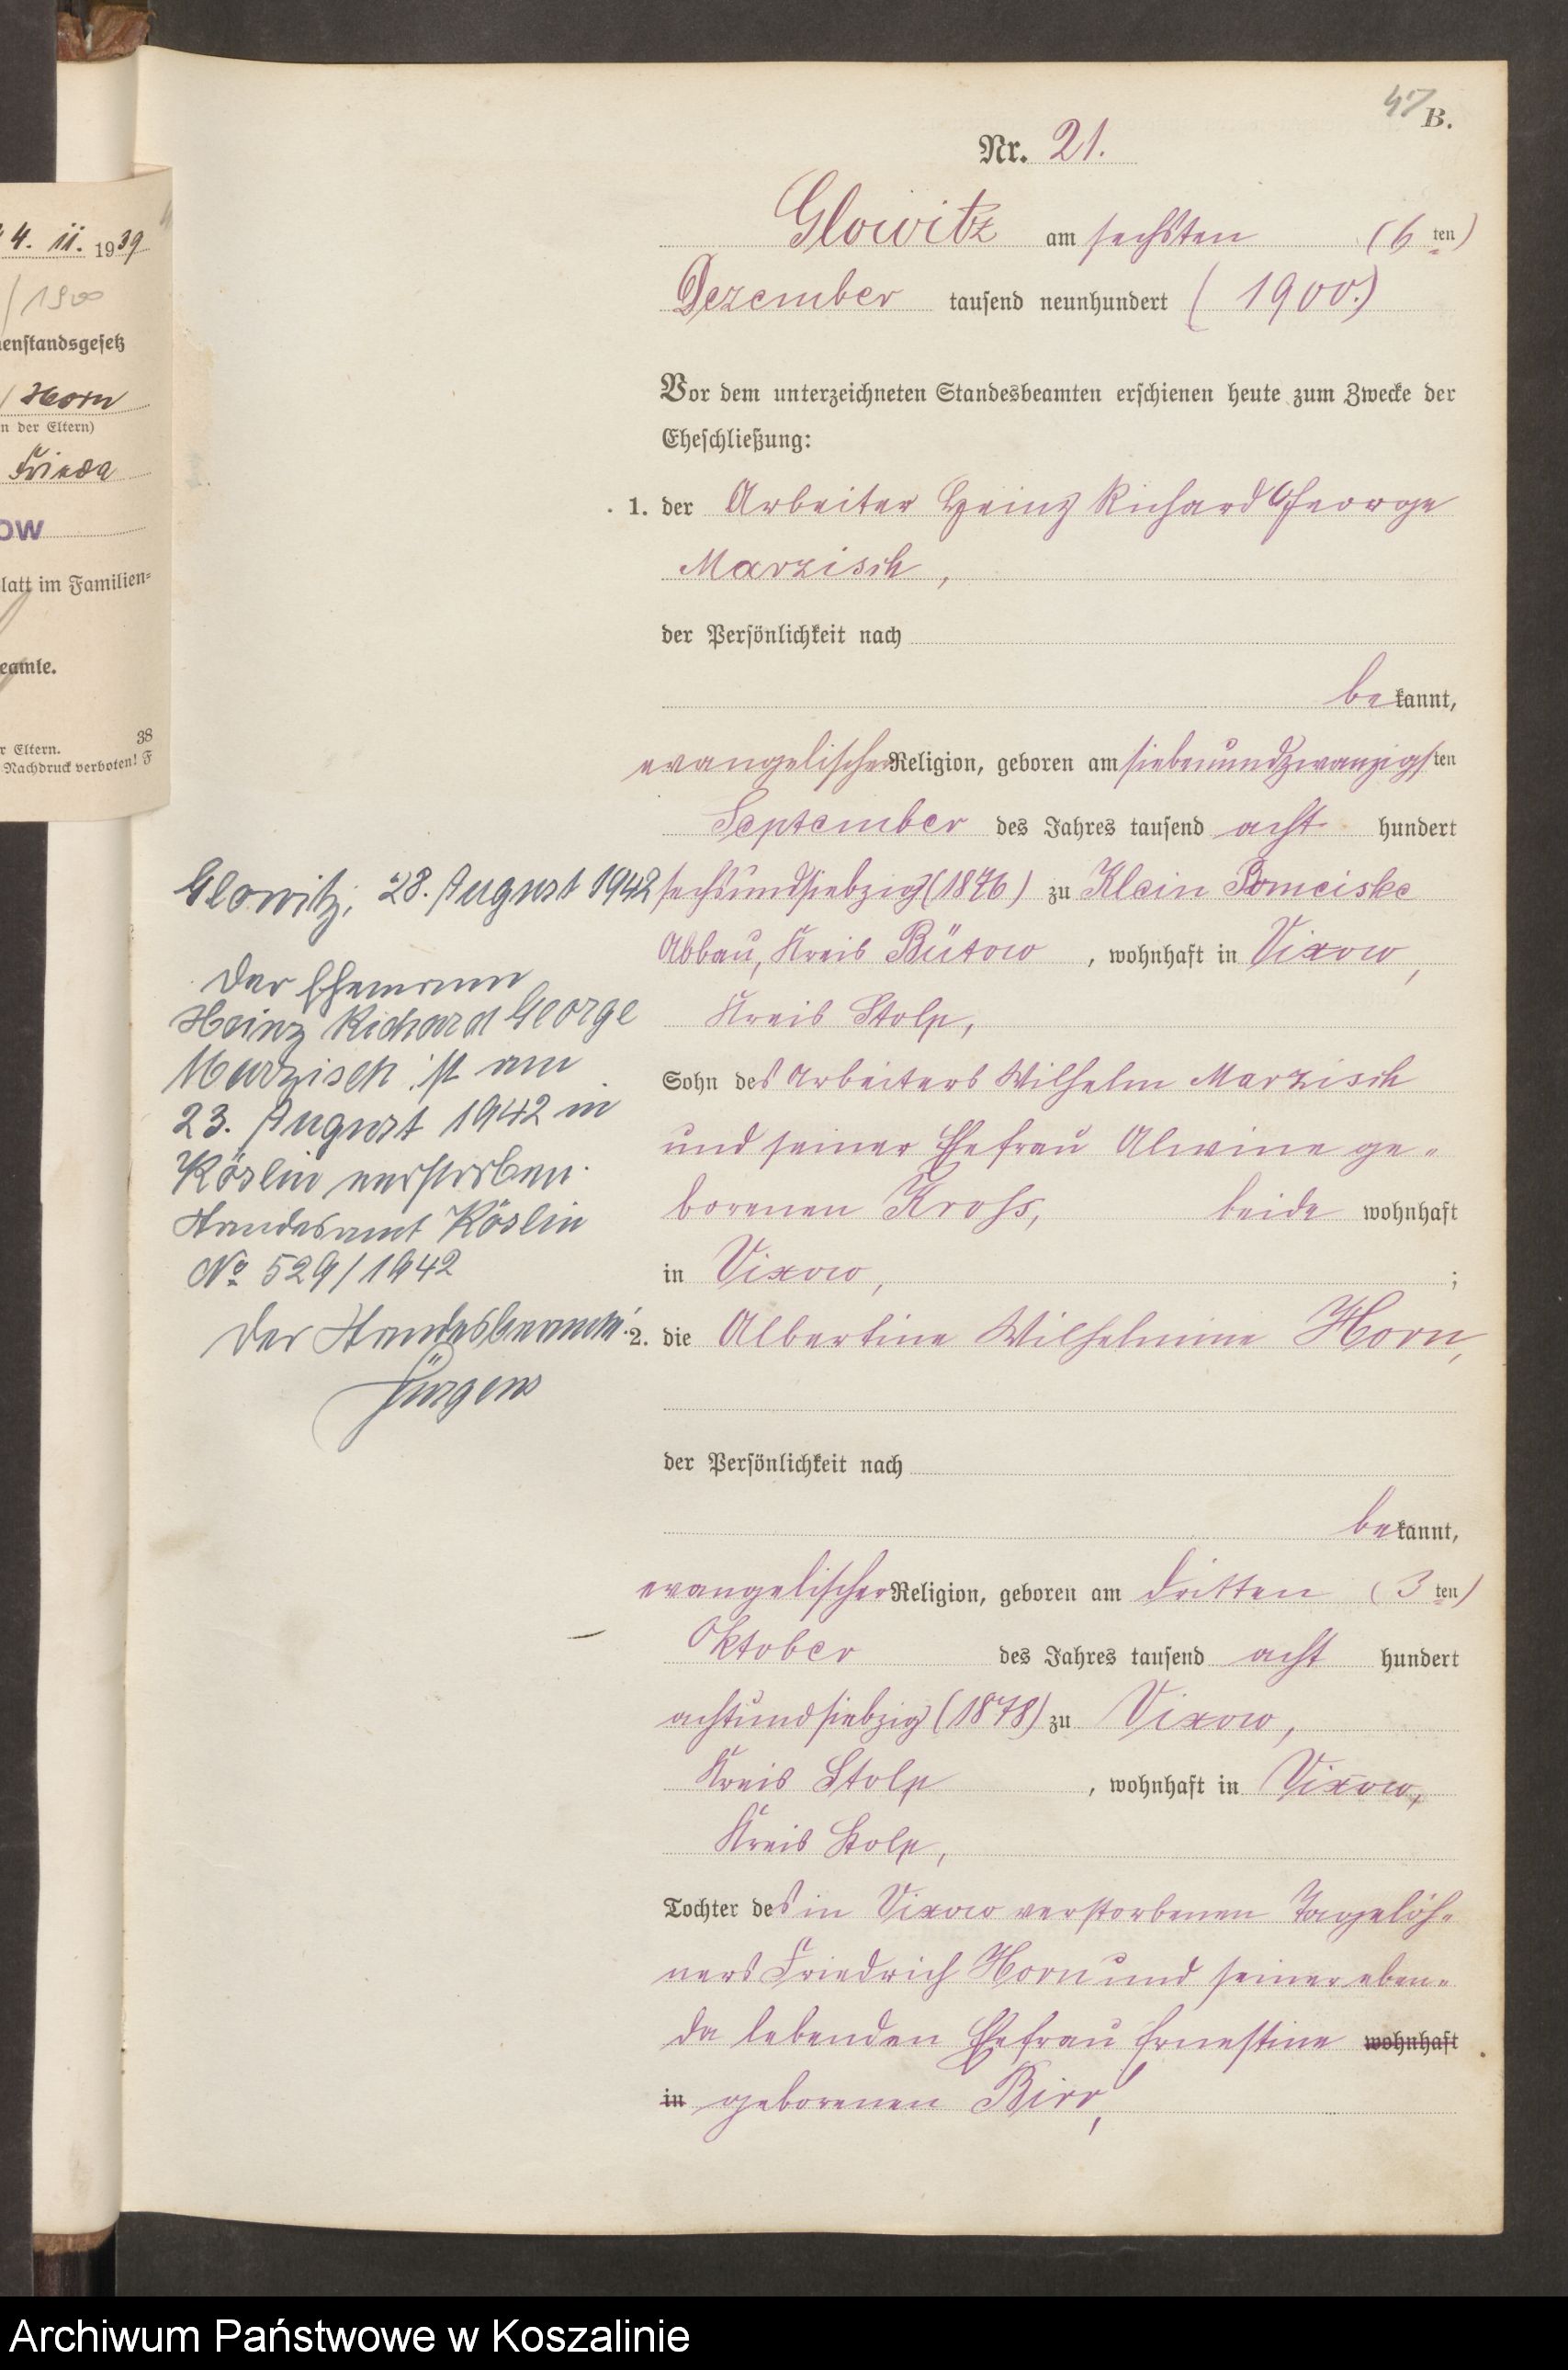 47
B.
Nr. 21.
Glowitz am sechsten (6ten)
Dezember tausend neunhundert (1900.)
Vor dem unterzeichneten Standesbeamten erschienen heute zum Zwecke der
Eheschließung:
1. der Arbeiter Heinz Richard George
Marzisch,
der Persönlichkeit nach
bekannt,
evangelischer Religion, geboren am siebenundzwanzigsten
September des Jahres tausend acht hundert
sechsundsiebzig (1876) zu Klein Pomeiske
Abbau, Kreis Bütow, wohnhaft in Vixow,
Kreis Stolp,
Sohn des Arbeiters Wilhelm Marzisch
und seiner Ehefrau Alwine ge-
borenen Kroß, beide wohnhaft
in Vixow, ;
2. die Albertine Wilhelmine Horn,
der Persönlichkeit nach
bekannt,
evangelischer Religion, geboren am dritten (3ten)
Oktober des Jahres tausend acht hundert
achtundsiebzig (1878) zu Vixow,
Kreis Stolp, wohnhaft in Vixow,
Kreis Stolp,
Tochter des in Vixow verstorbenen Tagelöh-
ners Friedrich Horn und seiner eben-
da lebenden Ehefrau Ernestine wohnhaft
in geborenen Birr,
Glowitz, 28. August 1942
Der Ehemann
Heinz Richard George
Marzisch ist am
23. August 1942 in
Köslin verstorben.
Standesamt Köslin
No 529/1942
Der Standesbeamte.
Jürgens
4. 11. 1939
/1900
enstandsgesetz
/ Horn
n der Eltern)
Frieda
ow
latt im Familien-
eamte.
r Eltern. 38
Nachdruck verboten! F
Archiwum Państwowe w Koszalinie